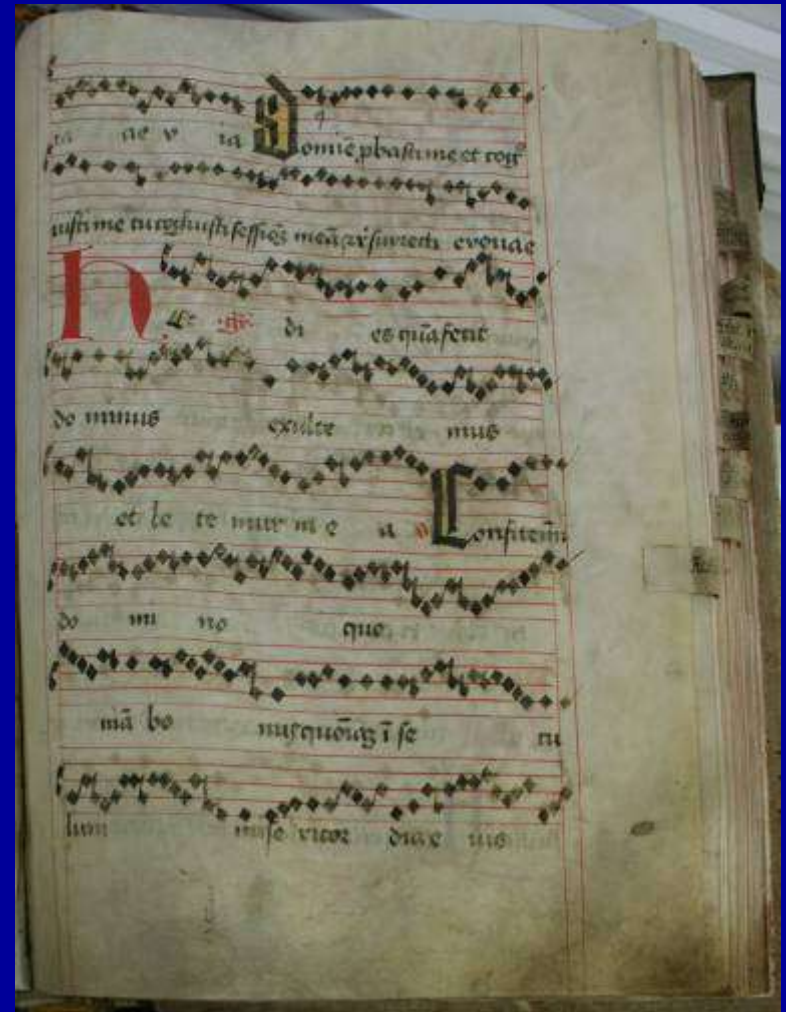 ta ae v ia Domiē pbasti me et cog
uisti me tu cognuisti sessiōz meā et resurrecti evouae
Hec di es quā fecit
do minus exulte mus
et le te mur in e a Confitemi
do mi no quo
niā bo nus quoniaz ī se cu
lum mise ricor dia e ius